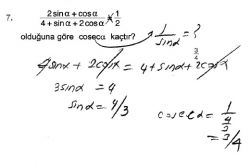 7. 2 sinα + cosα / 4 + sinα + 2 cosα = 1/2
olduğuna göre cosecα kaçtır? 1/sinα = ?
4 sinα + 2cosα = 4 + sinα + 2cosα
3 sinα = 4
sinα = 4/3
cosecα = 1 / (4/3)
= 3/4